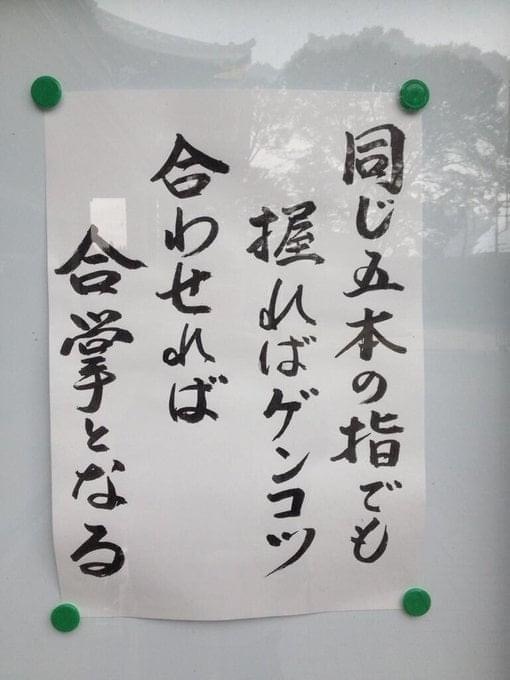 同じ五本の指でも
握ればゲンコツ
合わせれば
合掌となる